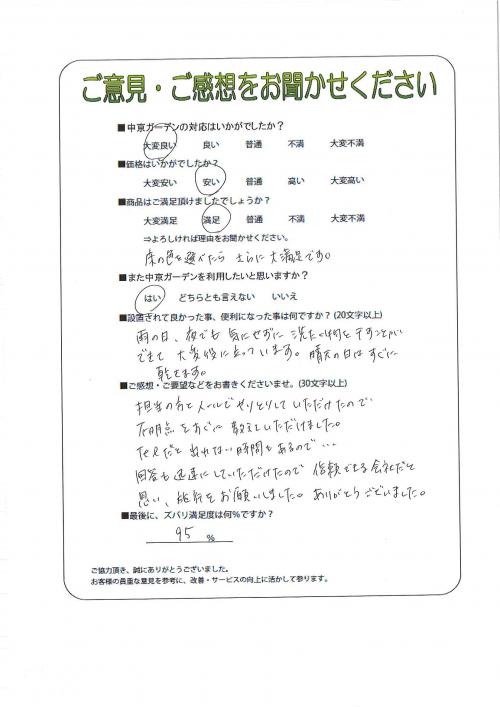 ご意見・ご感想をお聞かせください
■中京ガーデンの対応はいかがでしたか？
大変良い 良い 普通 不満 大変不満
■価格はいかがでしたか？
大変安い 安い 普通 高い 大変高い
■商品はご満足頂けましたでしょうか？
大変満足 満足 普通 不満 大変不満
⇒よろしければ理由をお聞かせください。
床の色を選べたら さらに大満足です。
■また中京ガーデンを利用したいと思いますか？
はい どちらとも言えない いいえ
■設置されて良かった事、便利になった事は何ですか？(20文字以上)
雨の日、夜でも 気にせずに 洗たく物を干すことが
できて 大変役に立っています。晴天の日はすぐに
乾きます。
■ご感想・ご要望などをお書きくださいませ。(30文字以上)
担当の方とメールでやりとりしていただけたので
不明点をすぐに教えていただけました。
Telだと出れない時間もあるので…
回答も迅速にしていただけたので 信頼できる会社だと
思い、施行をお願いしました。ありがとうございました。
■最後に、ズバリ満足度は何％ですか？
95 %
ご協力頂き、誠にありがとうございました。
お客様の貴重な意見を参考に、改善・サービスの向上に活かして参ります。